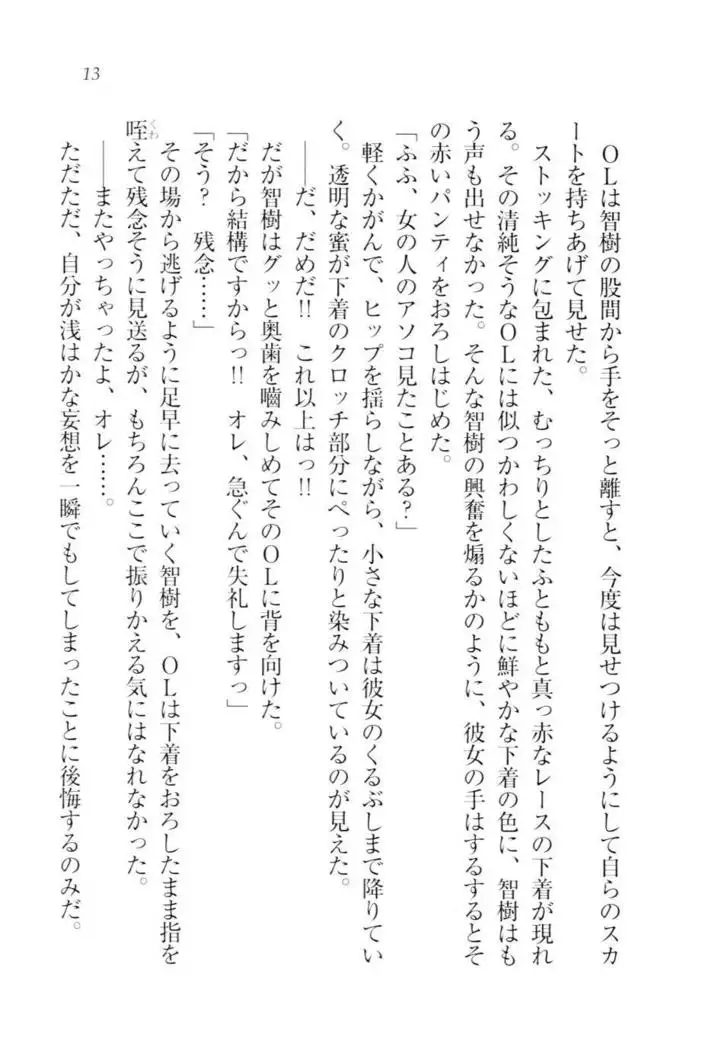 13
OLは智樹の股間から手をそっと離すと、今度は見せつけるようにして自らのスカ
ートを持ちあげて見せた。
ストッキングに包まれた、むっちりとしたふとももと真っ赤なレースの下着が現れ
る。その清純そうなOLには似つかわしくないほどに鮮やかな下着の色に、智樹はも
う声も出せなかった。そんな智樹の興奮を煽るかのように、彼女の手はするするとそ
の赤いパンティをおろしはじめた。
「ふふ、女の人のアソコ見たことある?」
軽くかがんで、ヒップを揺らしながら、小さな下着は彼女のくるぶしまで降りてい
く。透明な蜜が下着のクロッチ部分にぺったりと染みついているのが見えた。
――だ、だめだ!! これ以上はっ!!
だが智樹はグッと奥歯を噛みしめてそのOLに背を向けた。
「だから結構ですからっ!! オレ、急ぐんで失礼しますっ」
「そう? 残念……」
その場から逃げるように足早に去っていく智樹を、OLは下着をおろしたまま指を
咥くわえて残念そうに見送るが、もちろんここで振りかえる気にはなれなかった。
――またやっちゃったよ、オレ……。
ただただ、自分が浅はかな妄想を一瞬でもしてしまったことに後悔するのみだ。